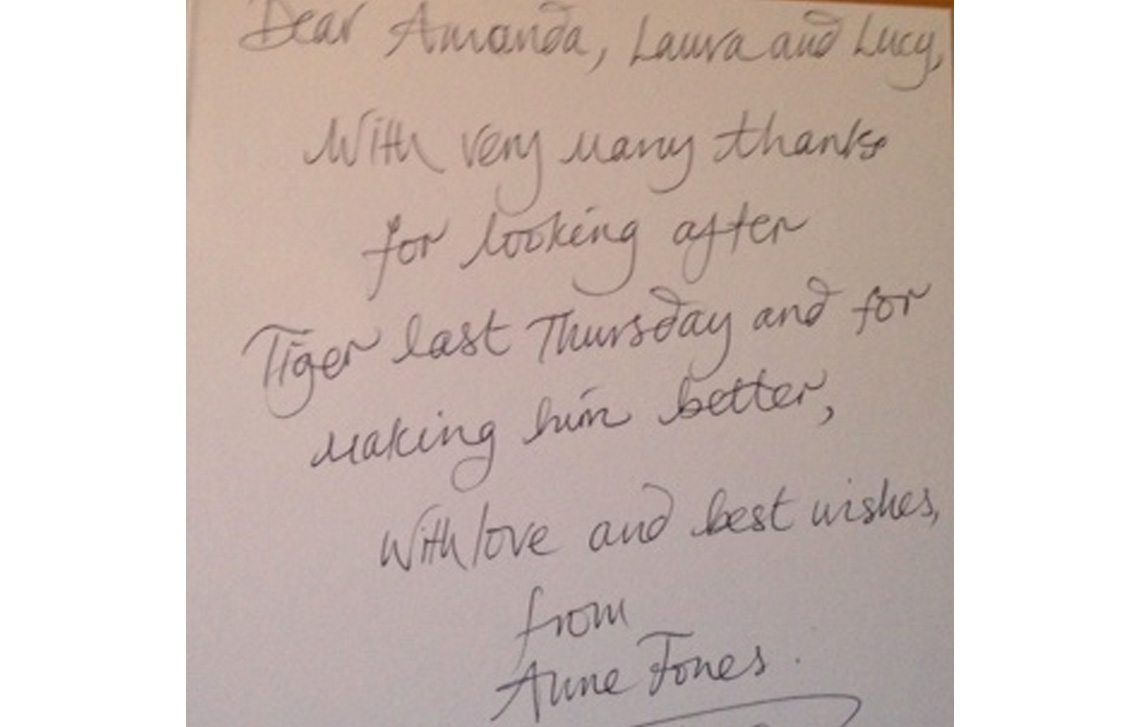 Dear Amanda, Laura and Lucy,
With very many thanks
for looking after
Tiger last Thursday and for
making him better,
With love and best wishes,
from
Anne Jones.